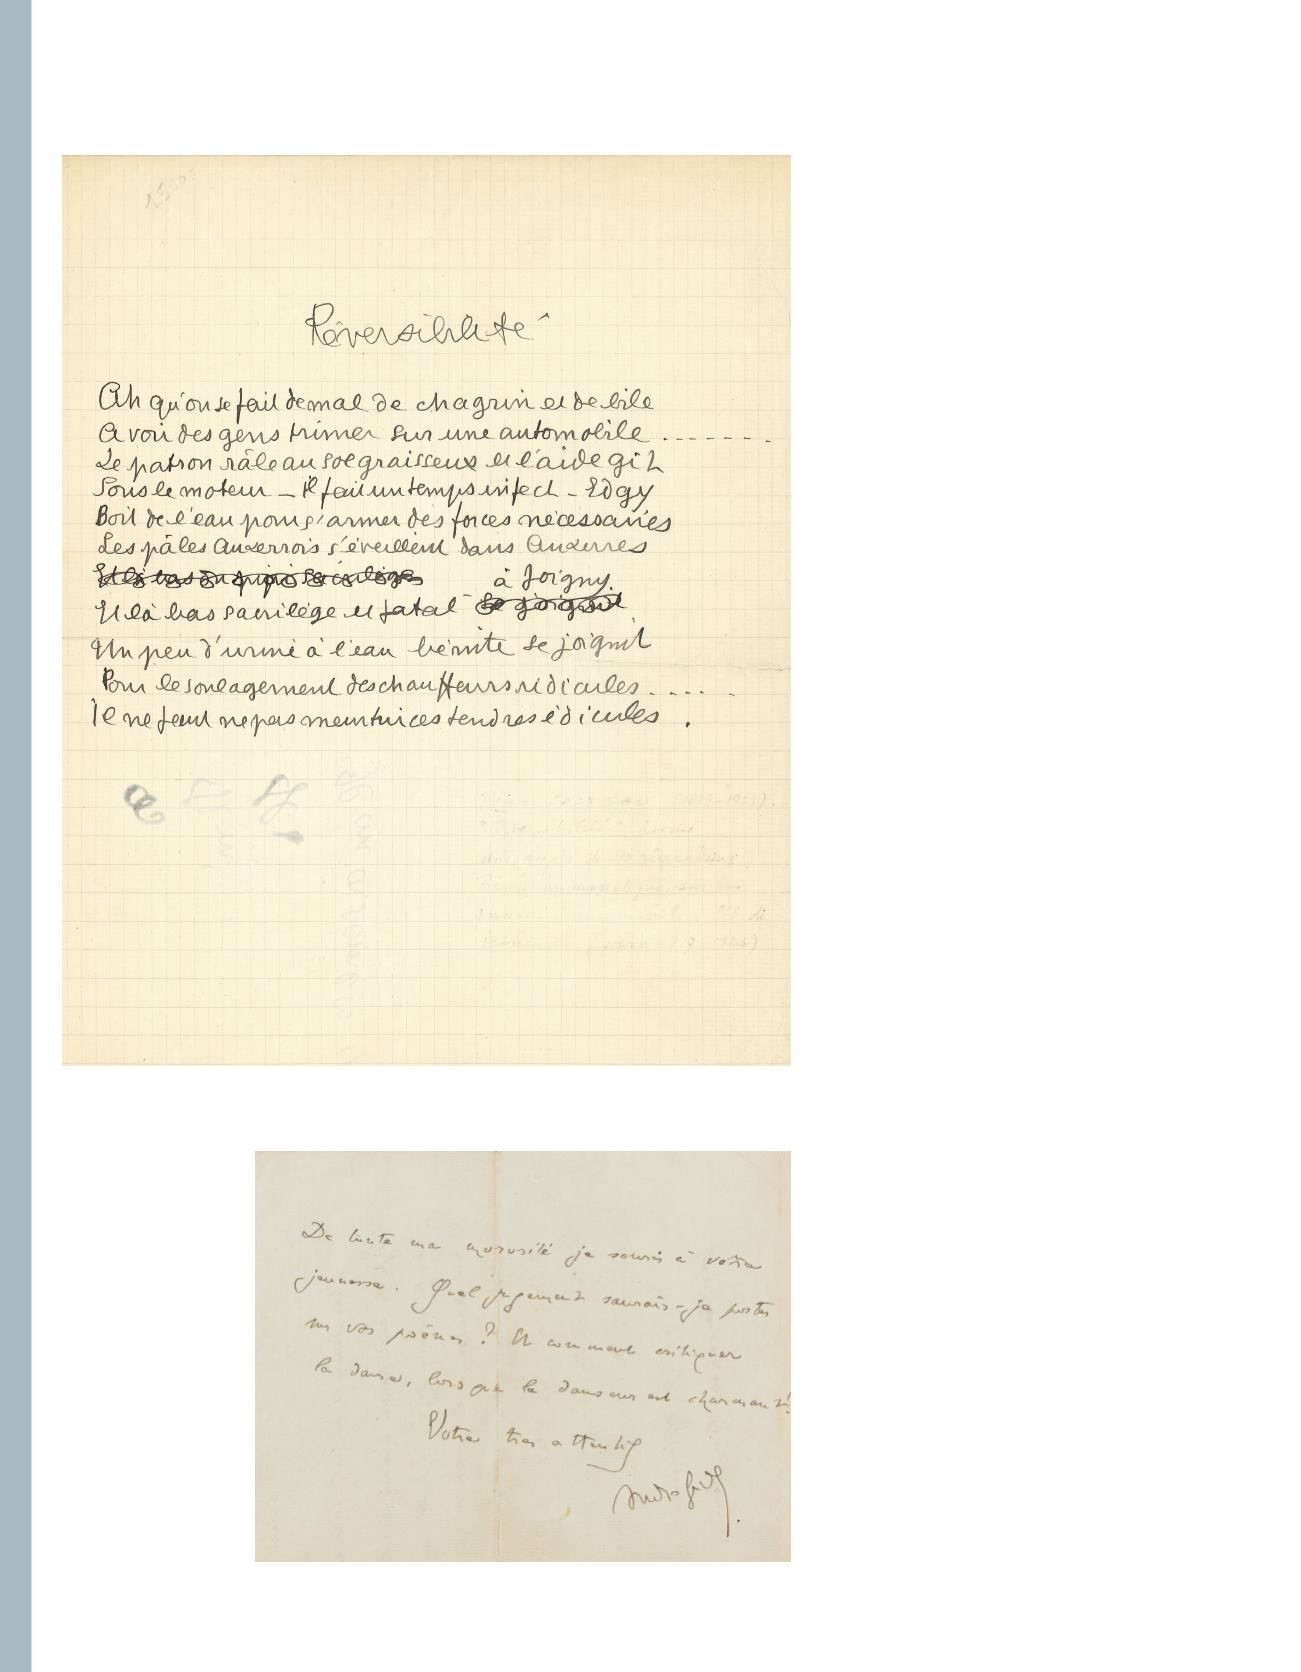 1500
Réversibilité
Ah qu'on se fait de mal de chagrin et de bile
A voir des gens trimer sur une automobile .......
Le patron râle au sol graisseux et l'aide gît
Sous le moteur – il fait un temps infect – Edgy
Boit de l'eau pour s'armer des forces nécessaires
Les pâles Auxerrois s'éveillent dans Auxerres
Et là bas
à Joigny.
Et là bas sacrilège et fatal se joignit
Un peu d'urine à l'eau bénite se joignit
Pour le soulagement des chauffeurs ridicules .....
Il ne faut ne pas meurtrir ces tendres édicules .
De toute ma morosité je souris à votre
jeunesse. Quel jugement saurais-je porter
sur vos poèmes ? Et comment critiquer
la danse, lorsque le danseur est charmant!
Votre très attentif
André Gide.